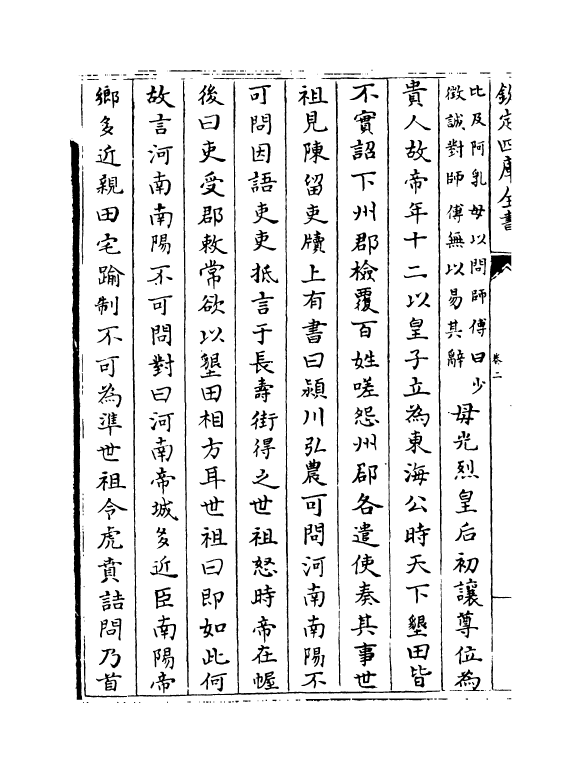 欽定四庫全書
卷二
比及阿乳母以問師傅曰少
徵誠對師傅無以易其辭
母光烈皇后初讓尊位為
貴人故帝年十二以皇子立為東海公時天下墾田皆
不實詔下州郡檢覆百姓嗟怨州郡各遣使奏其事世
祖見陳留吏牘上有書曰潁川弘農可問河南南陽不
可問因語吏吏抵言于長壽街得之世祖怒時帝在幄
後曰吏受郡敕常欲以墾田相方耳世祖曰即如此何
故言河南南陽不可問對曰河南帝城多近臣南陽帝
鄉多近親田宅踰制不可為準世祖令虎賁詰問乃首